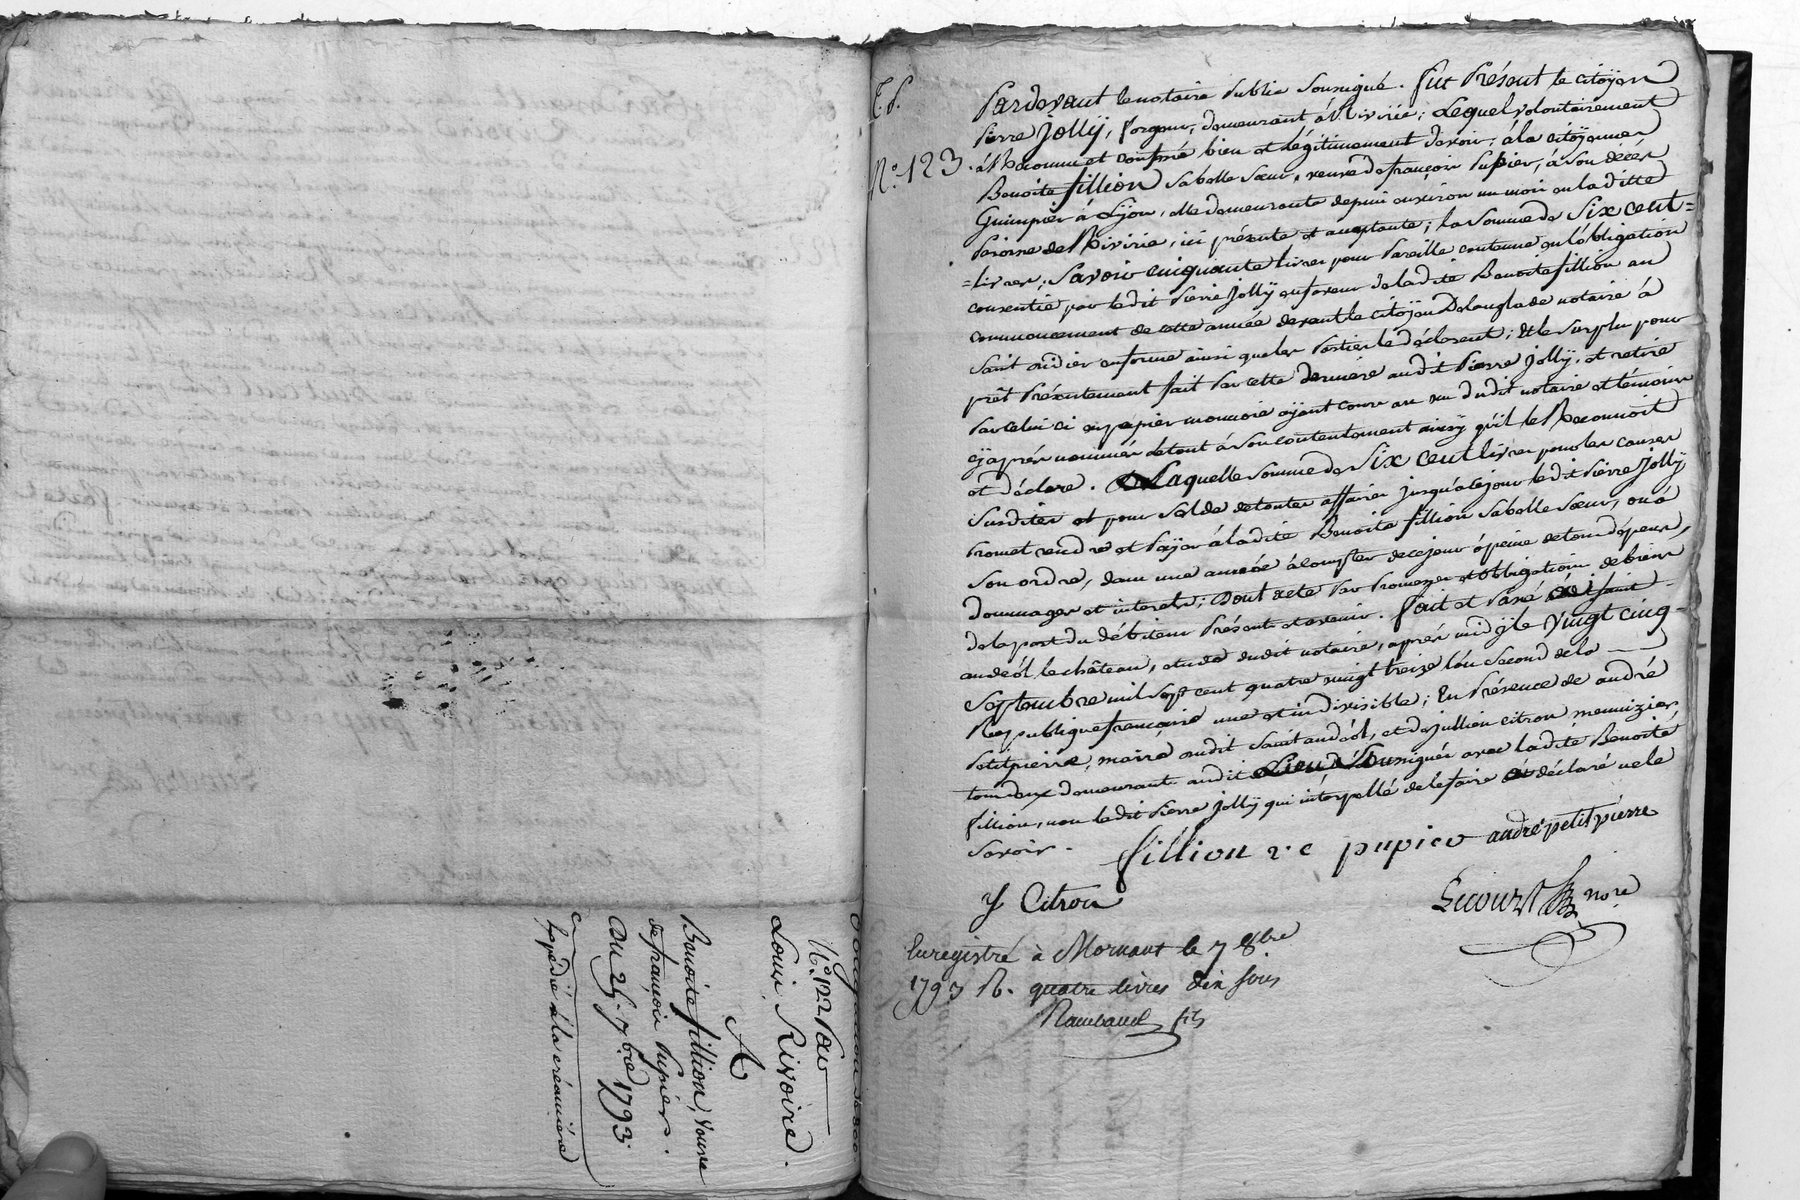 N°. 122 Par
Louis Rivoire
A
Benoite fillion, veuve
de françois Pupier.
Du 25. 7bre 1793.
Expedié à la créancière
E. P.
N°. 123.
Pardevant le notaire Public soussigné. fut Présent le citoÿen
Pierre Jollÿ, demeurant à Riviriè; Lequel volontairement
a Reconnu et confessé bien et légitimement devoir, à la citoÿenne
Benoite fillion sa belle sœur, veuve de françois Pupier, à son décès
Guimpier à Lÿon, elle demeurante depuis environ un mois en la ditte
Paroisse de Rivirie, ici présente et acceptante; la somme de Six cent=
=livres; Savoir cinquante livres pour Pareille contenue en l'obligation
consentie par le dit Pierre Jollÿ en faveur de la dite Benoite fillion au
commencement de cette année devant le citoÿen Delanglade notaire à
Saint en forme ainsi que les Parties le déclarent; Et le surplus pour
prêt Présentement fait Par cette derniere audit Pierre Jollÿ, et retiré
Par celui ci en papier monnoie aÿant cours au vu dudit notaire et témoins
cÿ après nommés le tout à son contentement ainsÿ qu'il le Reconnoit
et déclare. Laquelle somme de Six cent livres pour les causes
susdites et pour solde de toutes affaires jusqu'à ce jour le dit Pierre Jollÿ
Promet rendre et Paÿer à la dite Benoite fillion sa belle sœur, ou à
son ordre, dans une année à compter de ce jour à peine de tous dépens,
dommages et interets; Dont acte Par Promesses et obligations de biens
de la part du débiteur Présents et avenir. Fait et Passé à Saint=
andéol le château, etude dudit notaire, après midÿ le Vingt cinq
Septembre mil sept cent quatre vingt treize l'an second de la
Republique française une et indivisible; En Présence de andré
Petitpierre, maire audit Saint andéol, et de jullien citron menuizier
tous deux demeurants audit Lieu Soussignés avec la dite Benoite
fillion, non le dit Pierre Jollÿ qui interpellé de le faire a déclaré ne le
savoir.
fillion ve pupier andré petitpierre
J Citron
Lecourt nore
Enregistré à Mornant le 7 8bre
1793 R. quatre livres dix sous
Rambaud fils